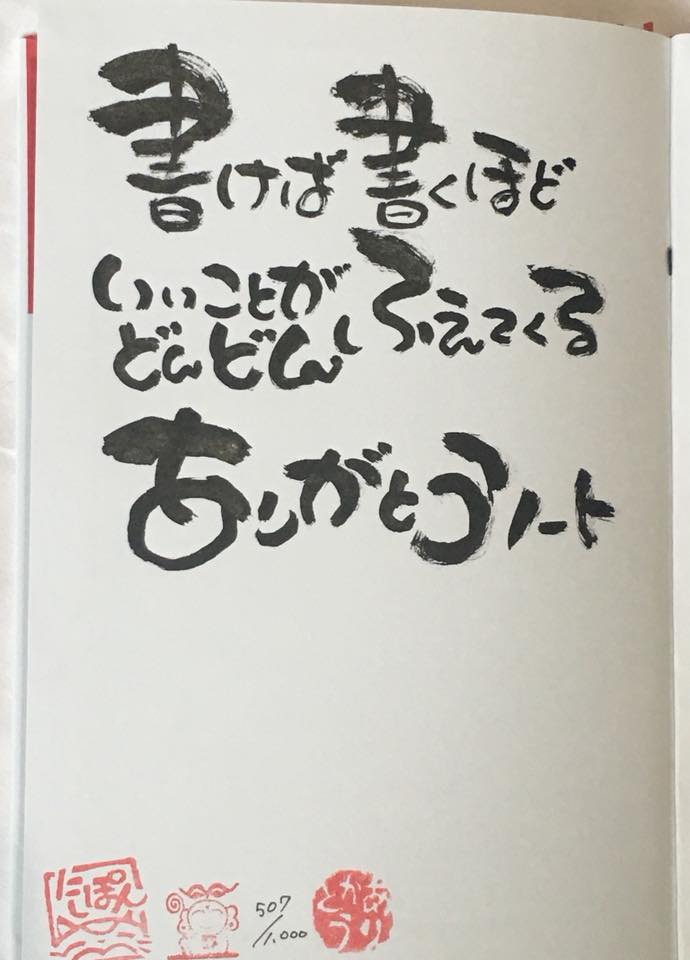 書けば書くほど
いいことが
どんどん ふえてくる
ありがとうノート
にしぽん
507/1,000